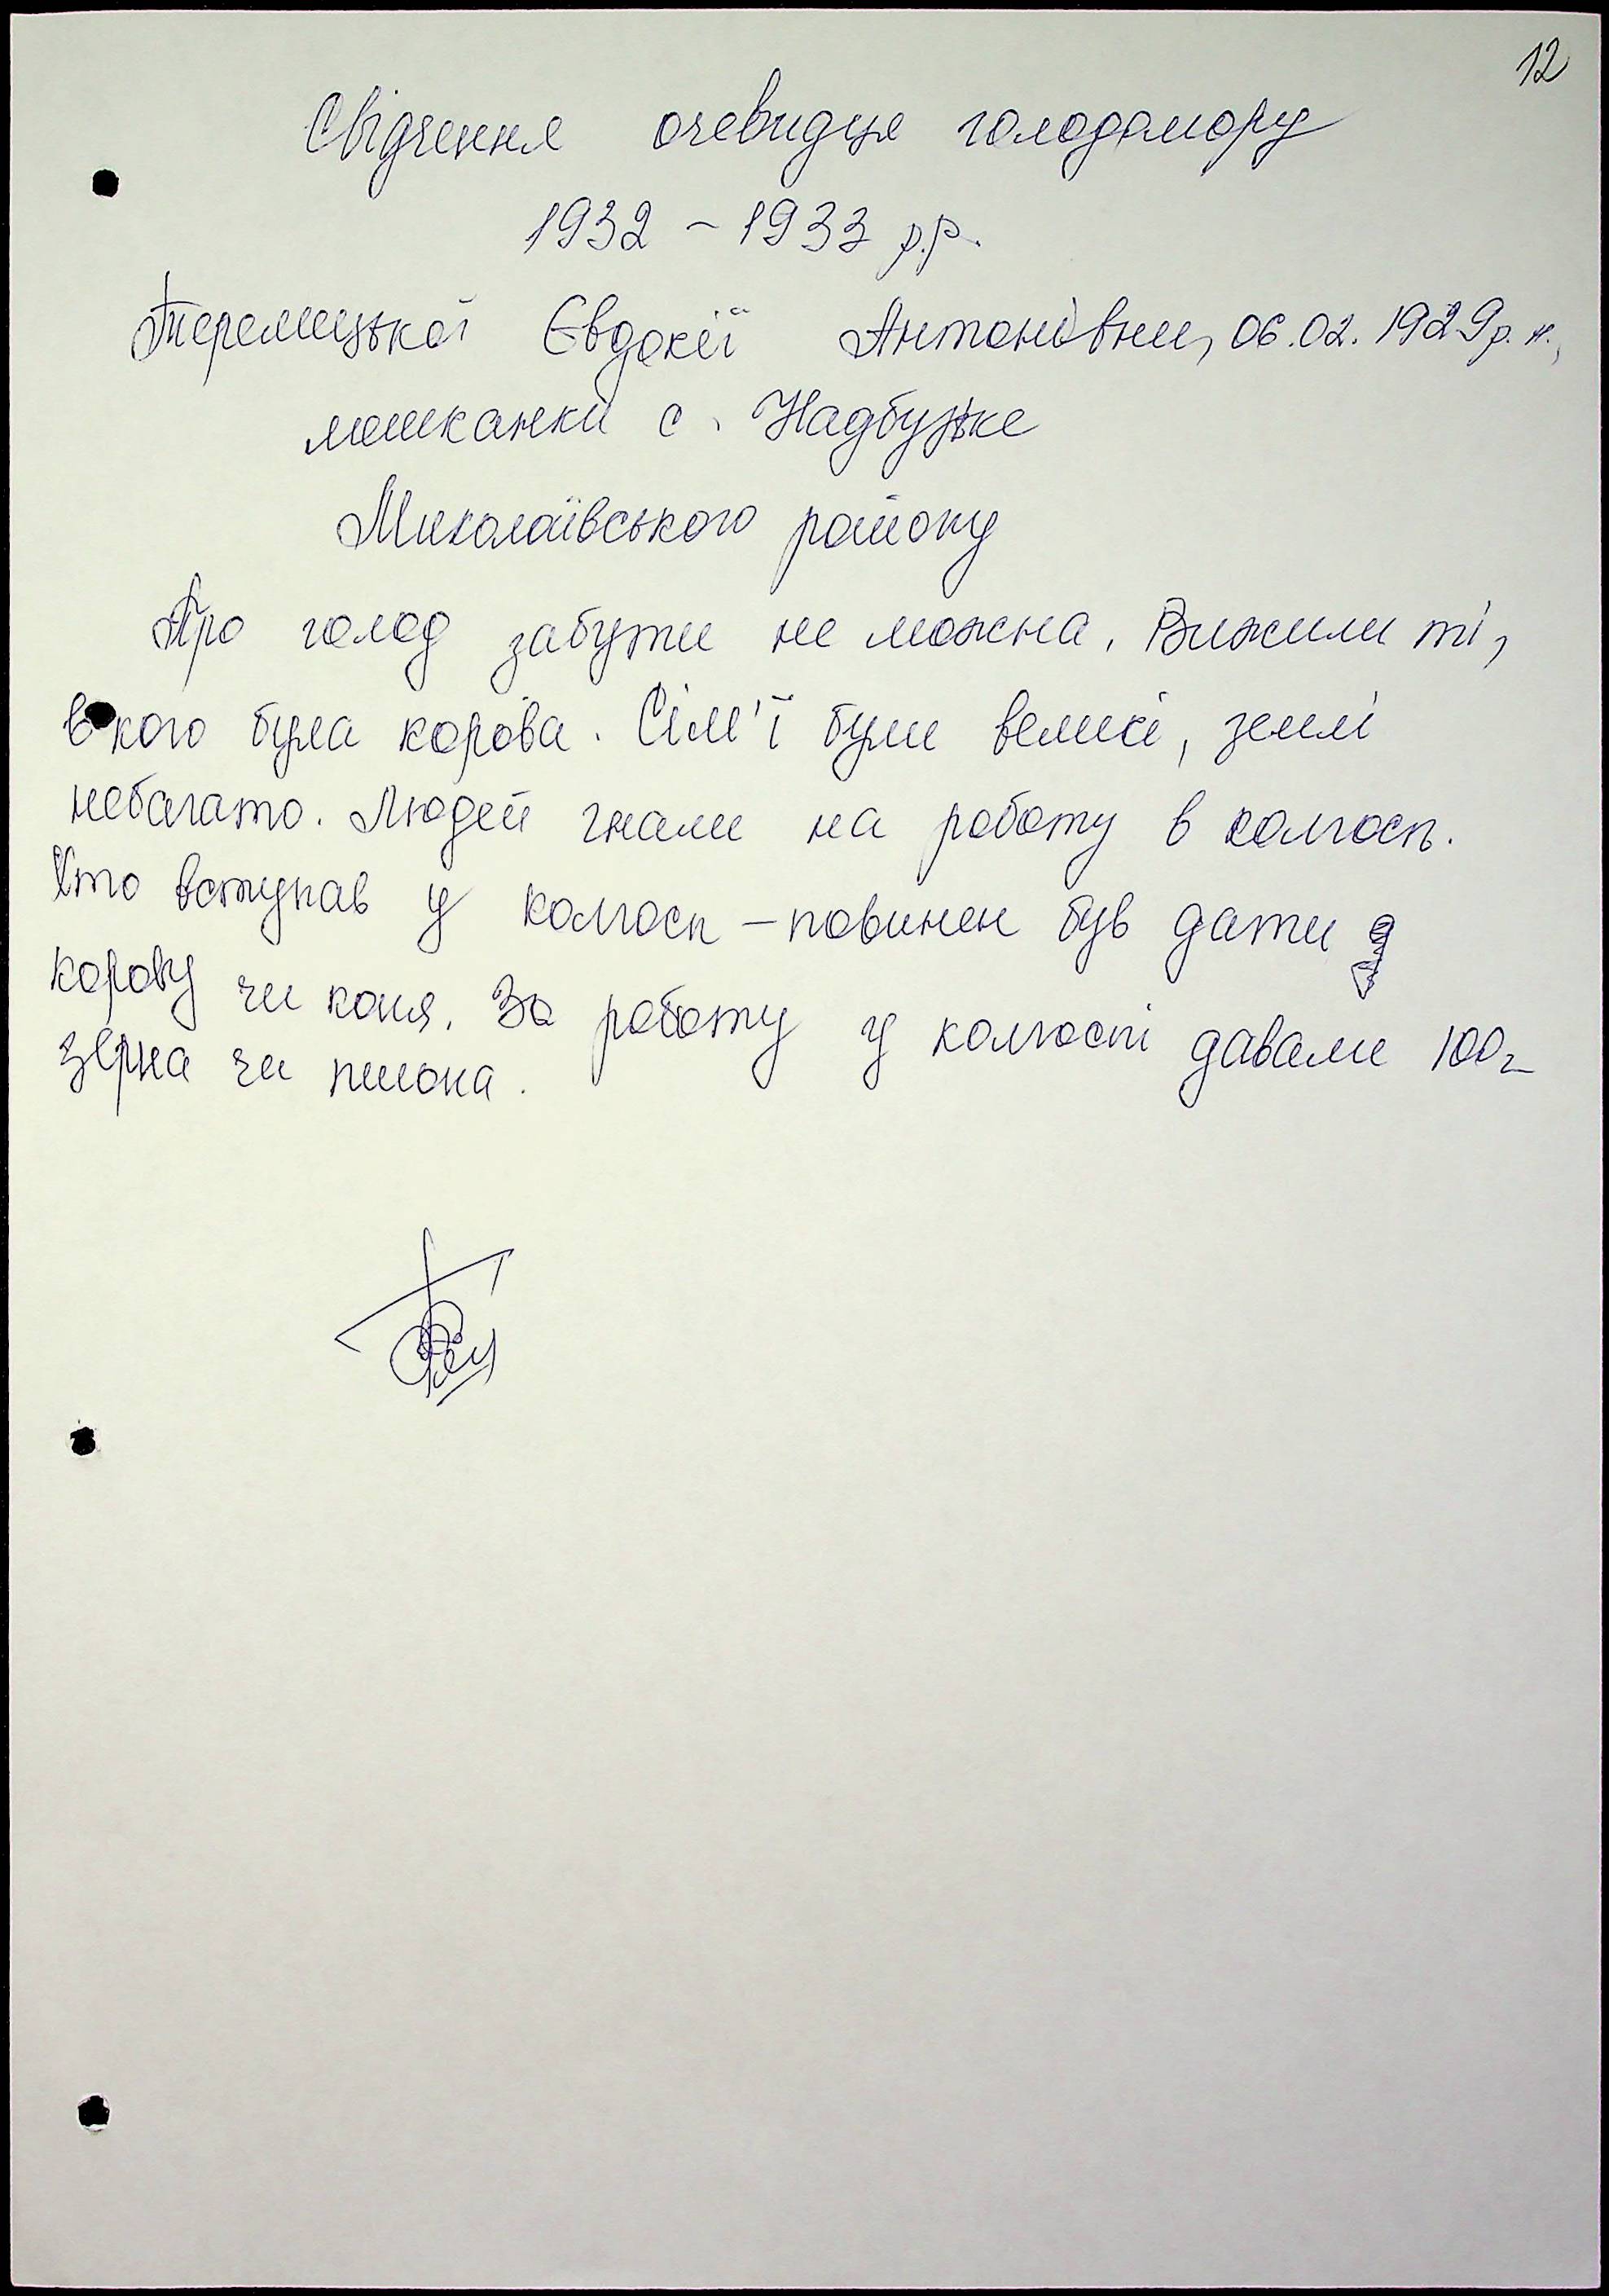 12
Свідчення очевидця голодомору
1932 - 1933 р.р.
Теремицької Євдокії Антонівни, 06.02.1929 р. н.,
мешканки с. Надбузьке
Миколаївського району
Про голод забути не можна. Вижили ті,
в кого була корова. Сім'ї були великі, землі
небагато. Людей гнали на роботу в колгосп.
Хто вступав у колгосп - повинен був дати
корову чи коня. За роботу у колгоспі давали 100 г
зерна чи пшона.